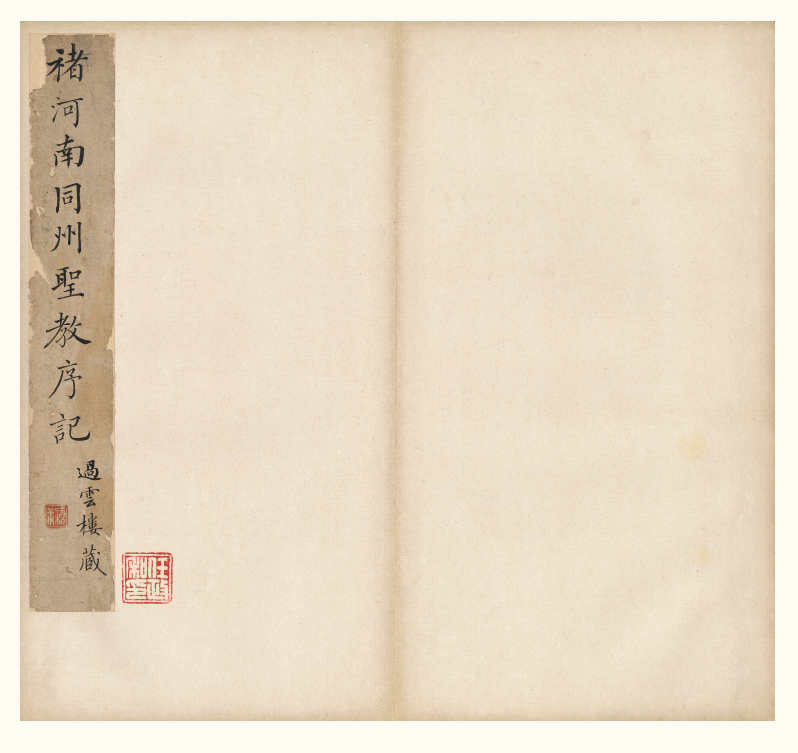 褚河南同州聖教序記
過雲樓藏